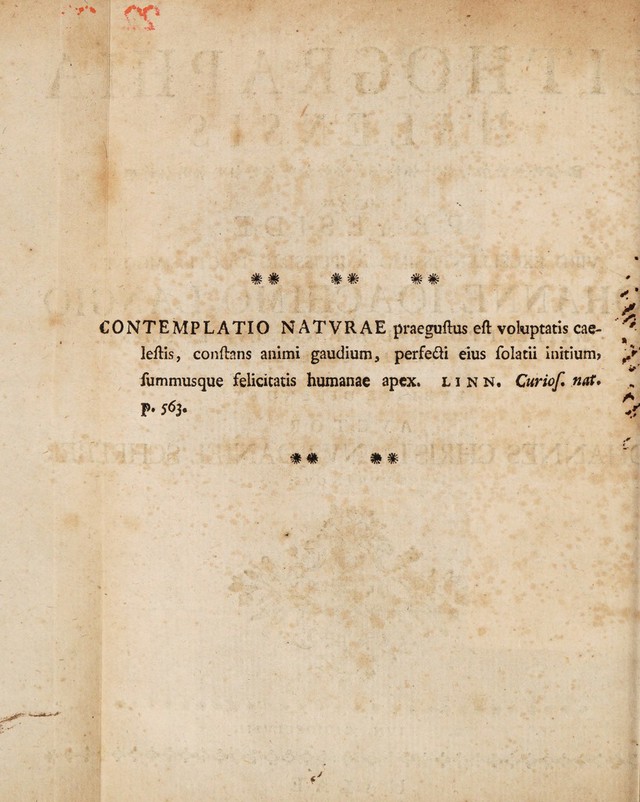 CONTEMPLATIO NATVRAE praeguſtus eſt voluptatis cae-
leſtis, conſtans animi gaudium, perfecti eius ſolatii initium,
ſummusque felicitatis humanae apex. LINN. Curioſ. nat.
p. 563.